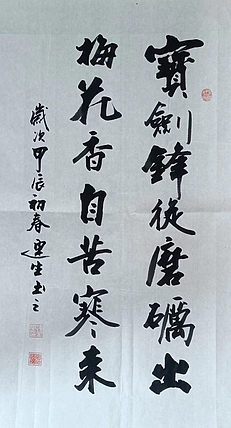 寶劍鋒從磨礪出
梅花香自苦寒来
歲次甲辰初春